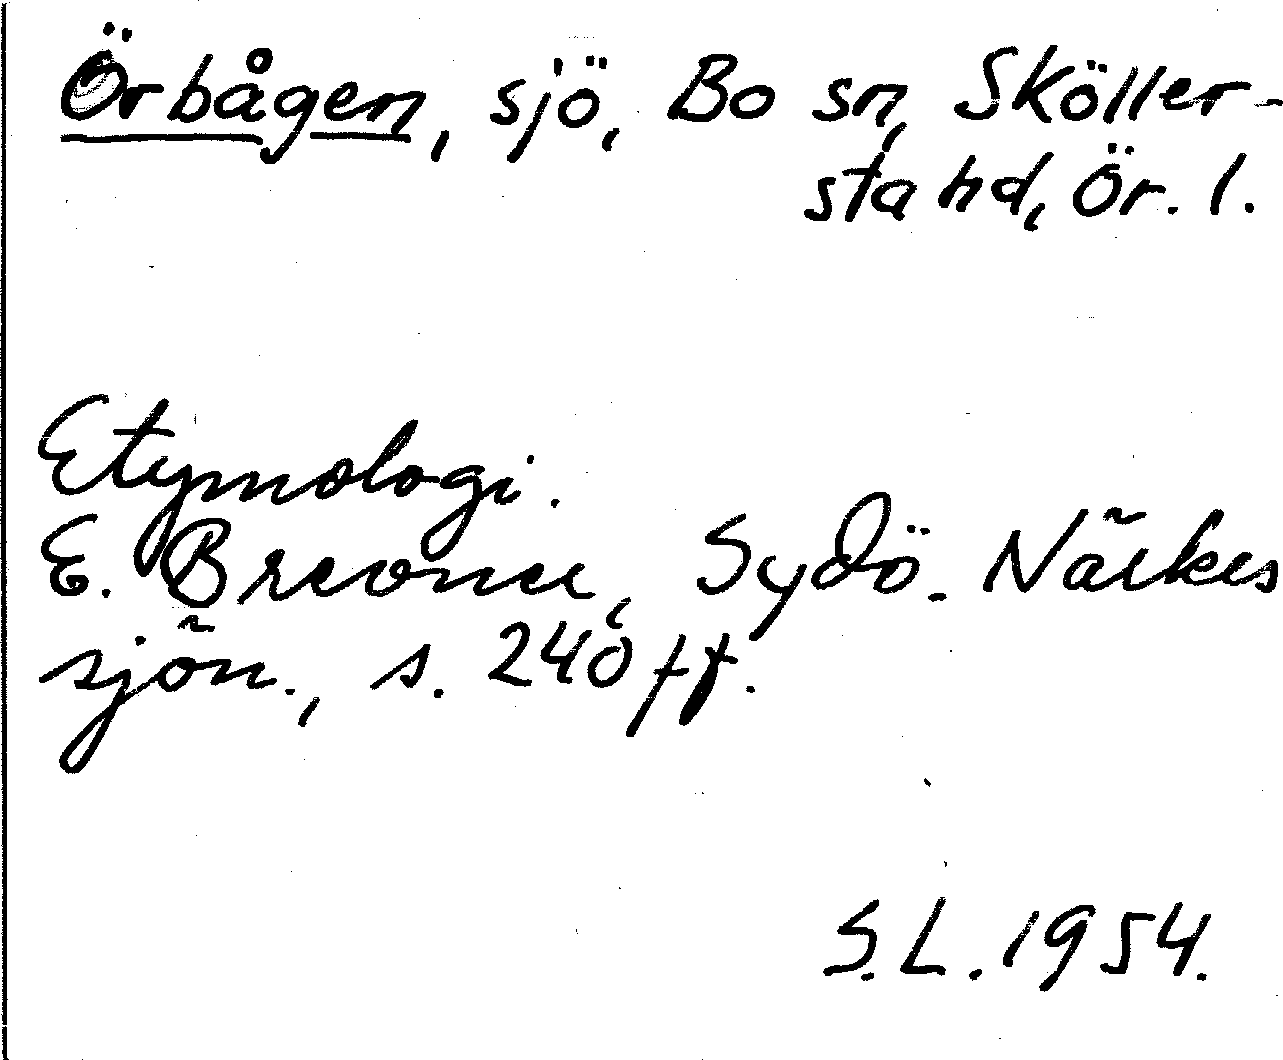 Örbågen, sjö, Bo sn, Sköller-
sta hd, Ör. l.
Etymologi.
E. Brevner, Sydö. Närkes
sjön., s. 240 ff.
S.L. 1954.